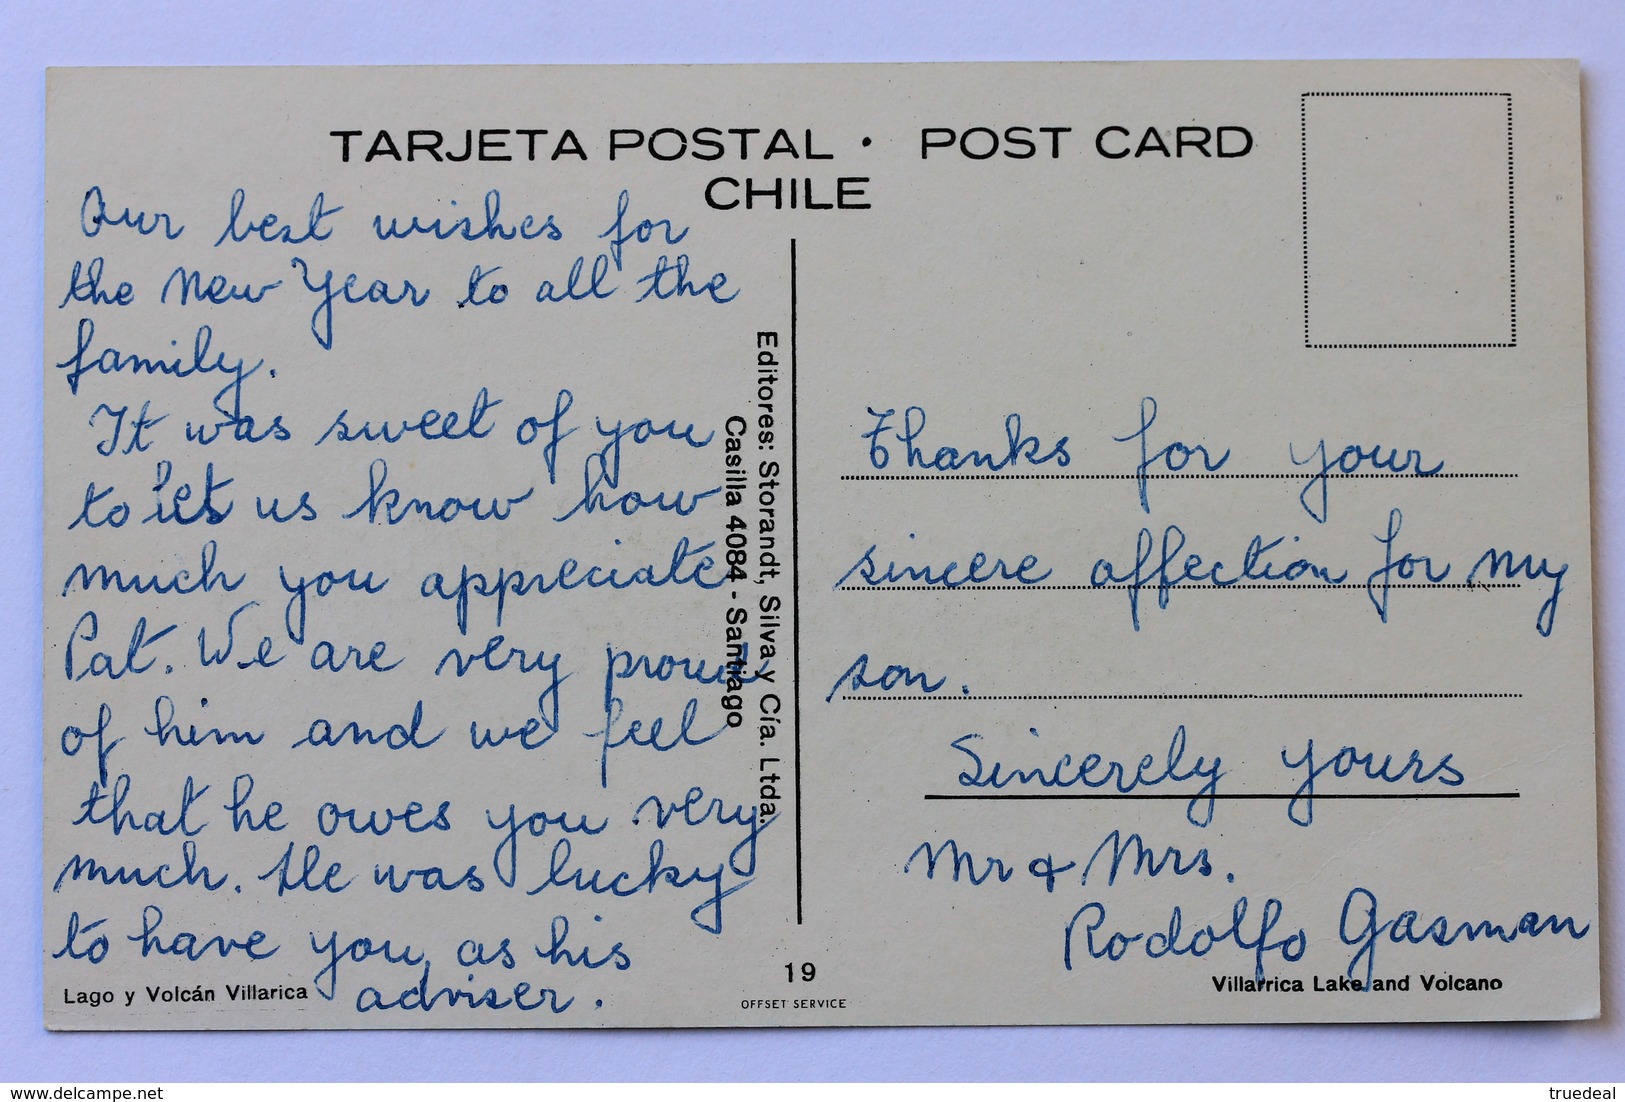 TARJETA POSTAL · POST CARD
CHILE
Our best wishes for
the New Year to all the
family.
It was sweet of you
to let us know how
much you appreciate
Pat. We are very proud
of him and we feel
that he owes you very
much. He was lucky
to have you as his
adviser.
Lago y Volcán Villarica
Editores: Storandt, Silva y Cía. Ltda.
Casilla 4084 - Santiago
19
OFFSET SERVICE
Thanks for your
sincere affection for my
son.
Sincerely yours
Mr & Mrs.
Rodolfo Gasman
Villarrica Lake and Volcano
www.delcampe.net
truedeal